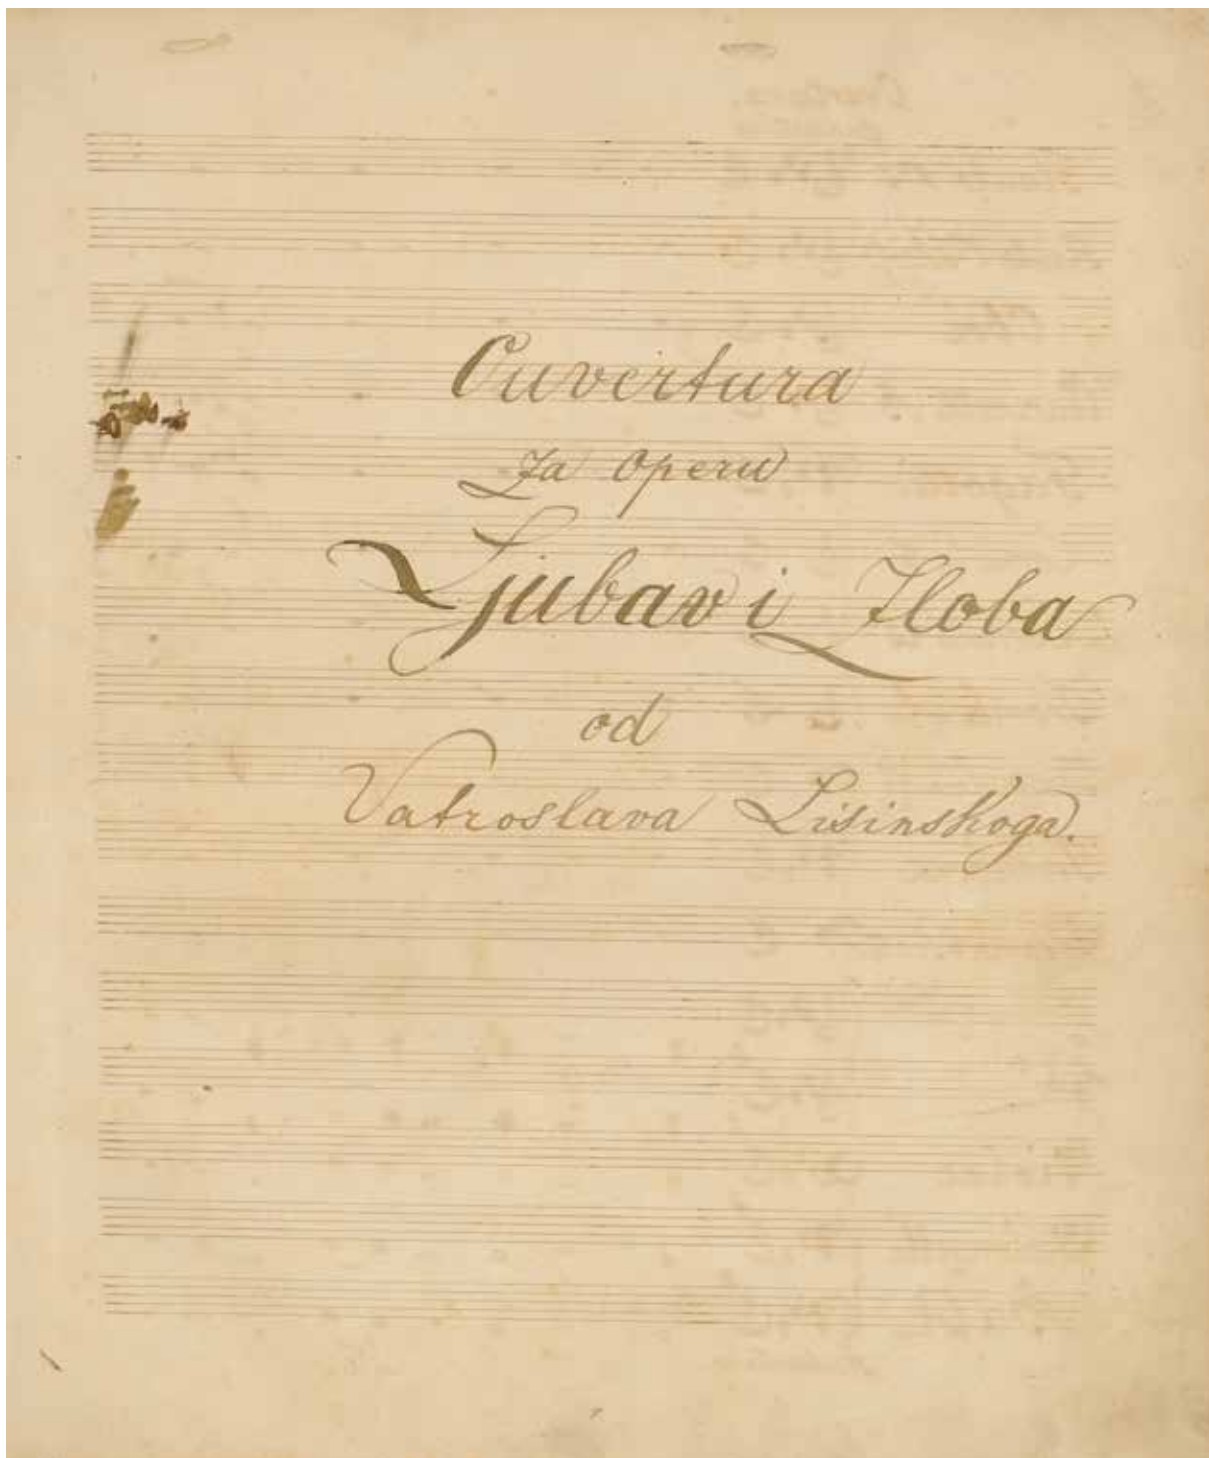 Ouvertura
za operu
Ljubav i Zloba
od
Vatroslava Lisinskoga.